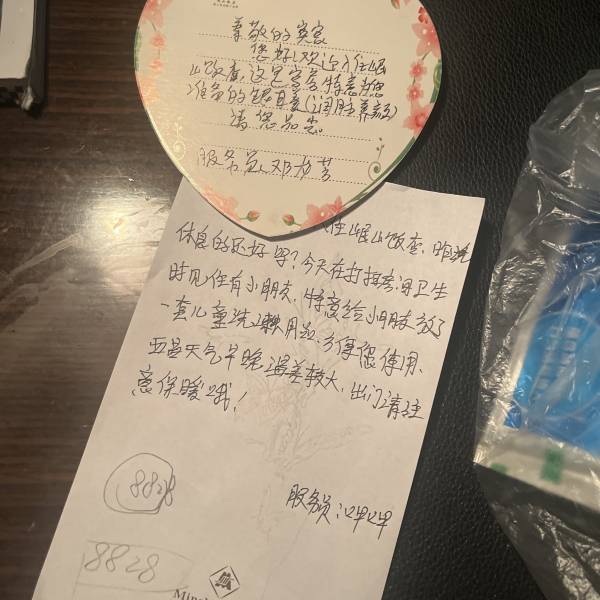 尊敬的宾客
您好！欢迎入住岷
山饭店，这是宾房特意为您
准备的银耳羹（润肺养颜）
请您品尝。
服务员：邓
住岷山饭店，昨晚
休息的还好吗？今天在打扫房间卫生
时见住有小朋友，特意给小朋友放了
一套儿童洗漱用品，方便您使用。
天气早晚温差较大，出门请注
意保暖哦！
服务员：
8828
8828
Mins